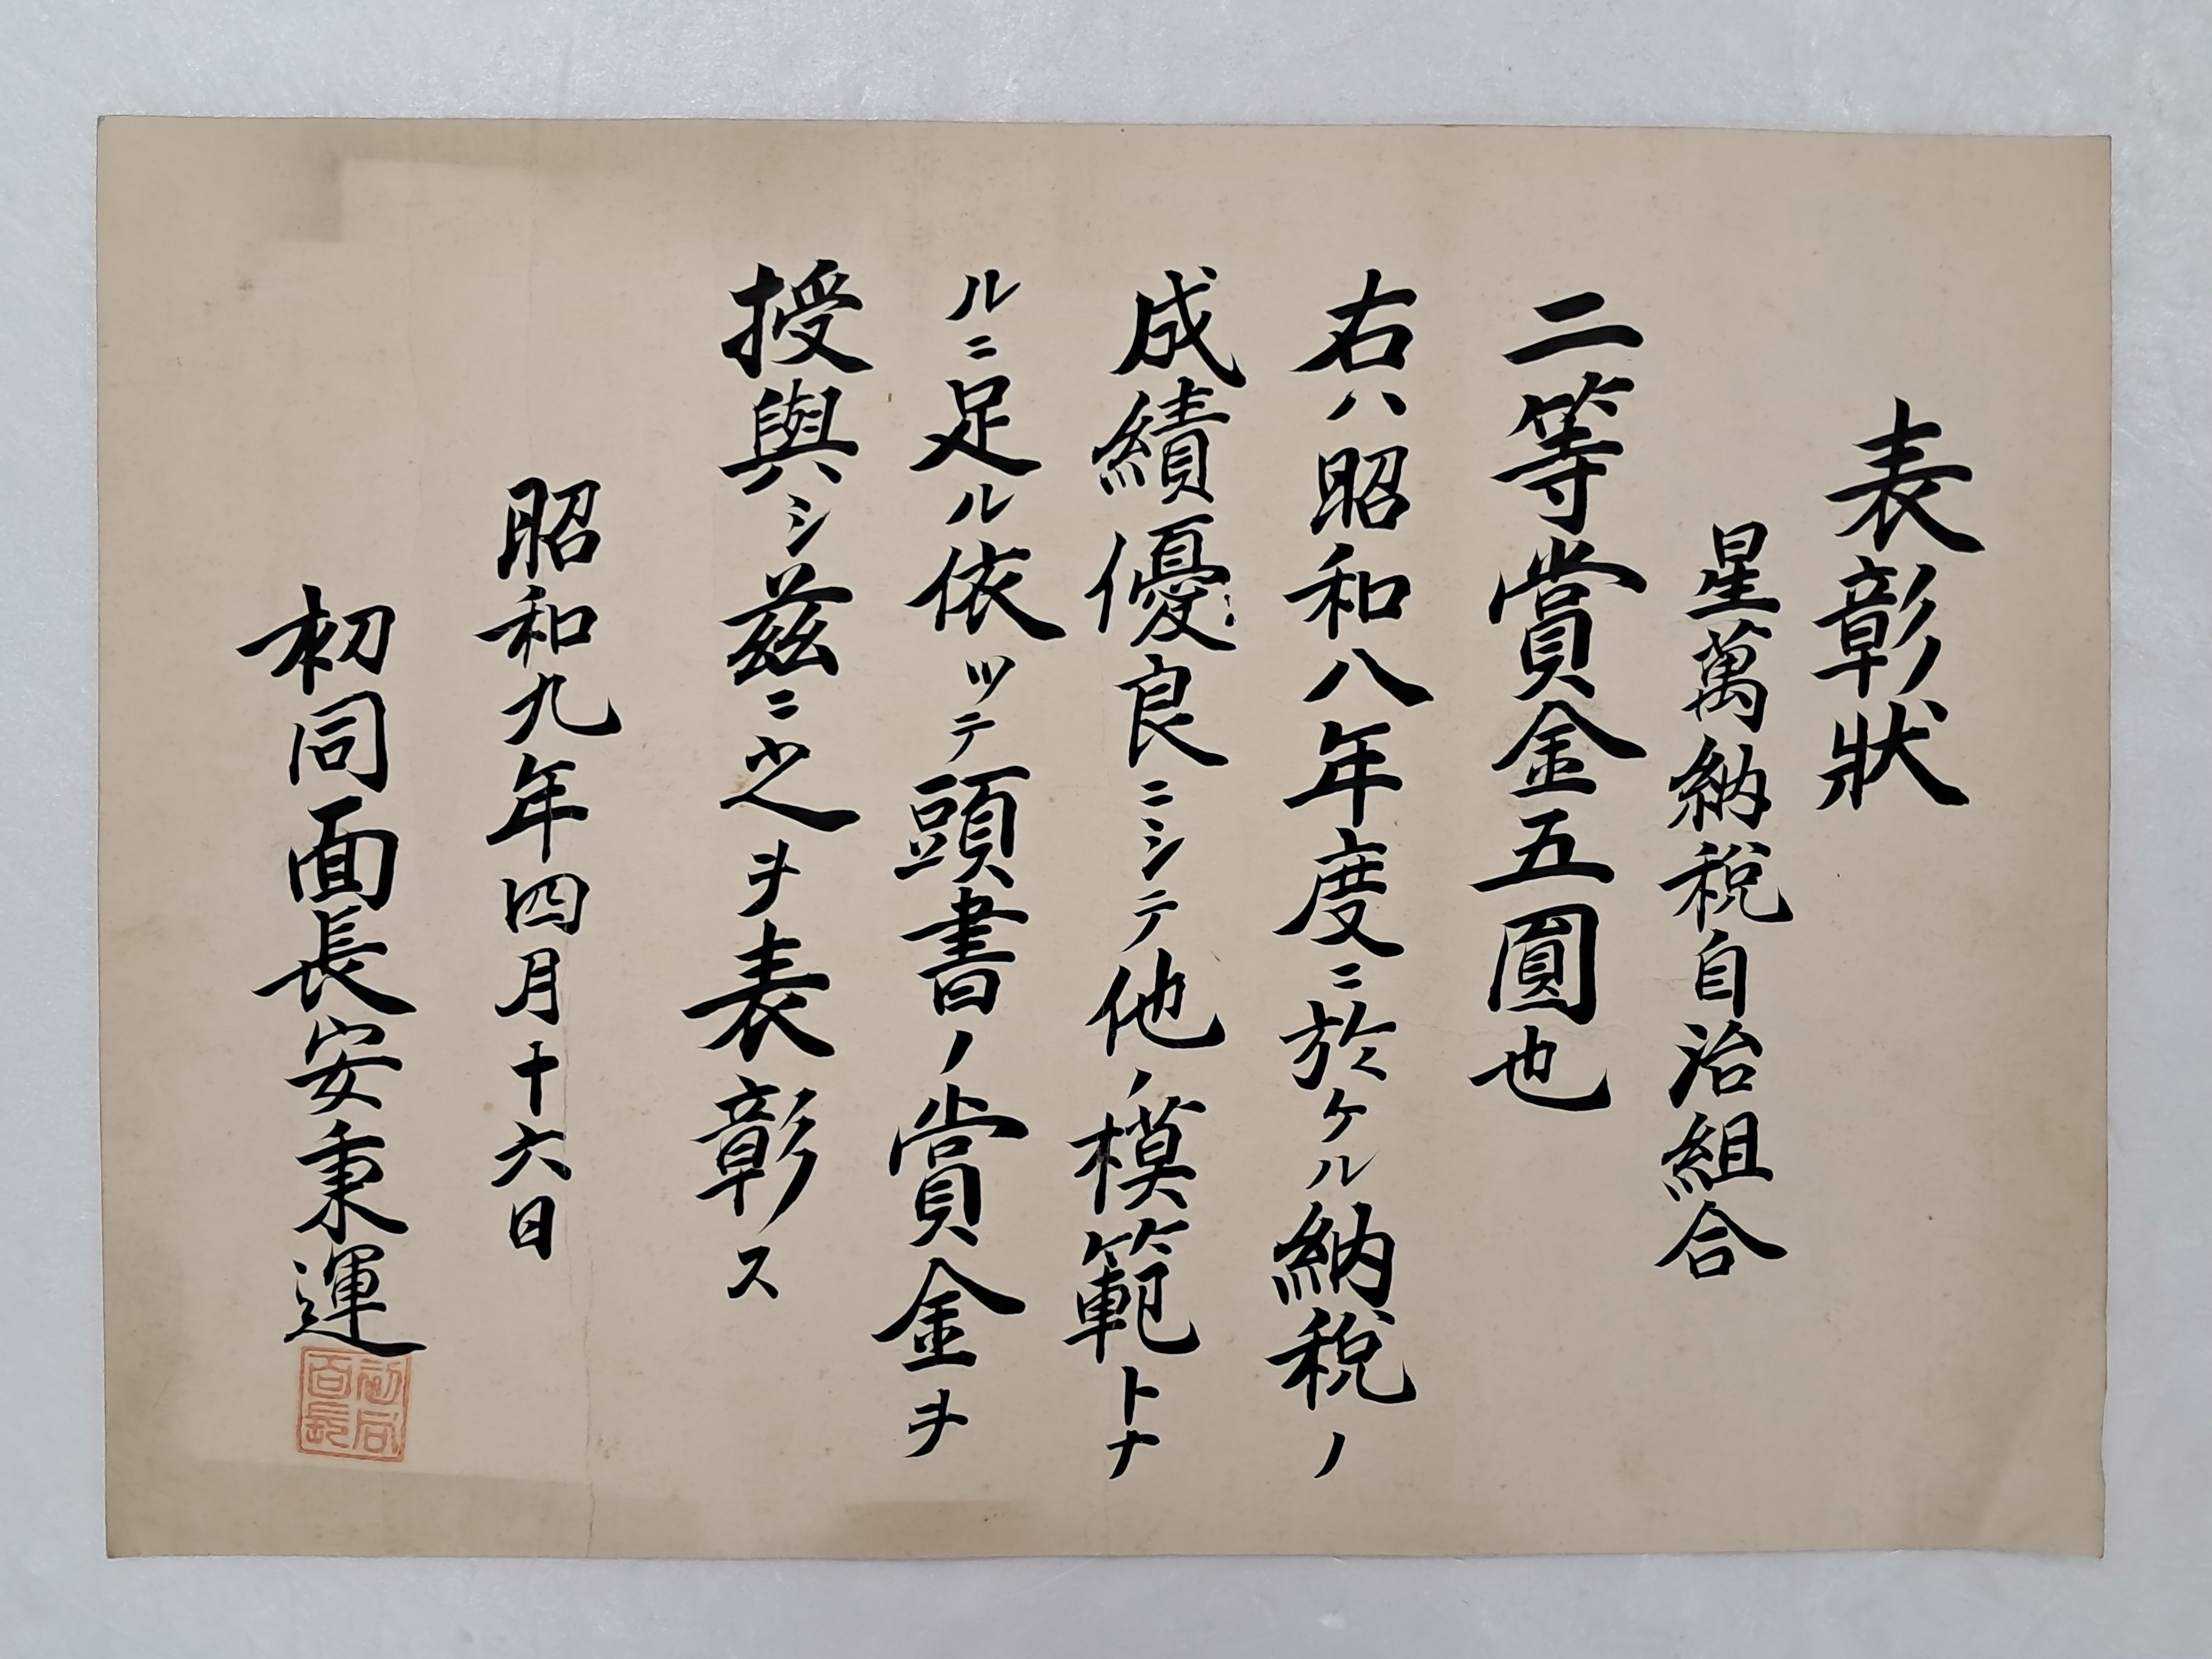 表彰狀
星萬納稅自治組合
二等賞金五圓也
右ハ昭和八年度ニ於ケル納稅ノ
成績優良ニシテ他ノ模範トナ
ルニ足ル依ツテ頭書ノ賞金ヲ
授與シ茲ニ之ヲ表彰ス
昭和九年四月十六日
初同面長安秉運
初同
面長